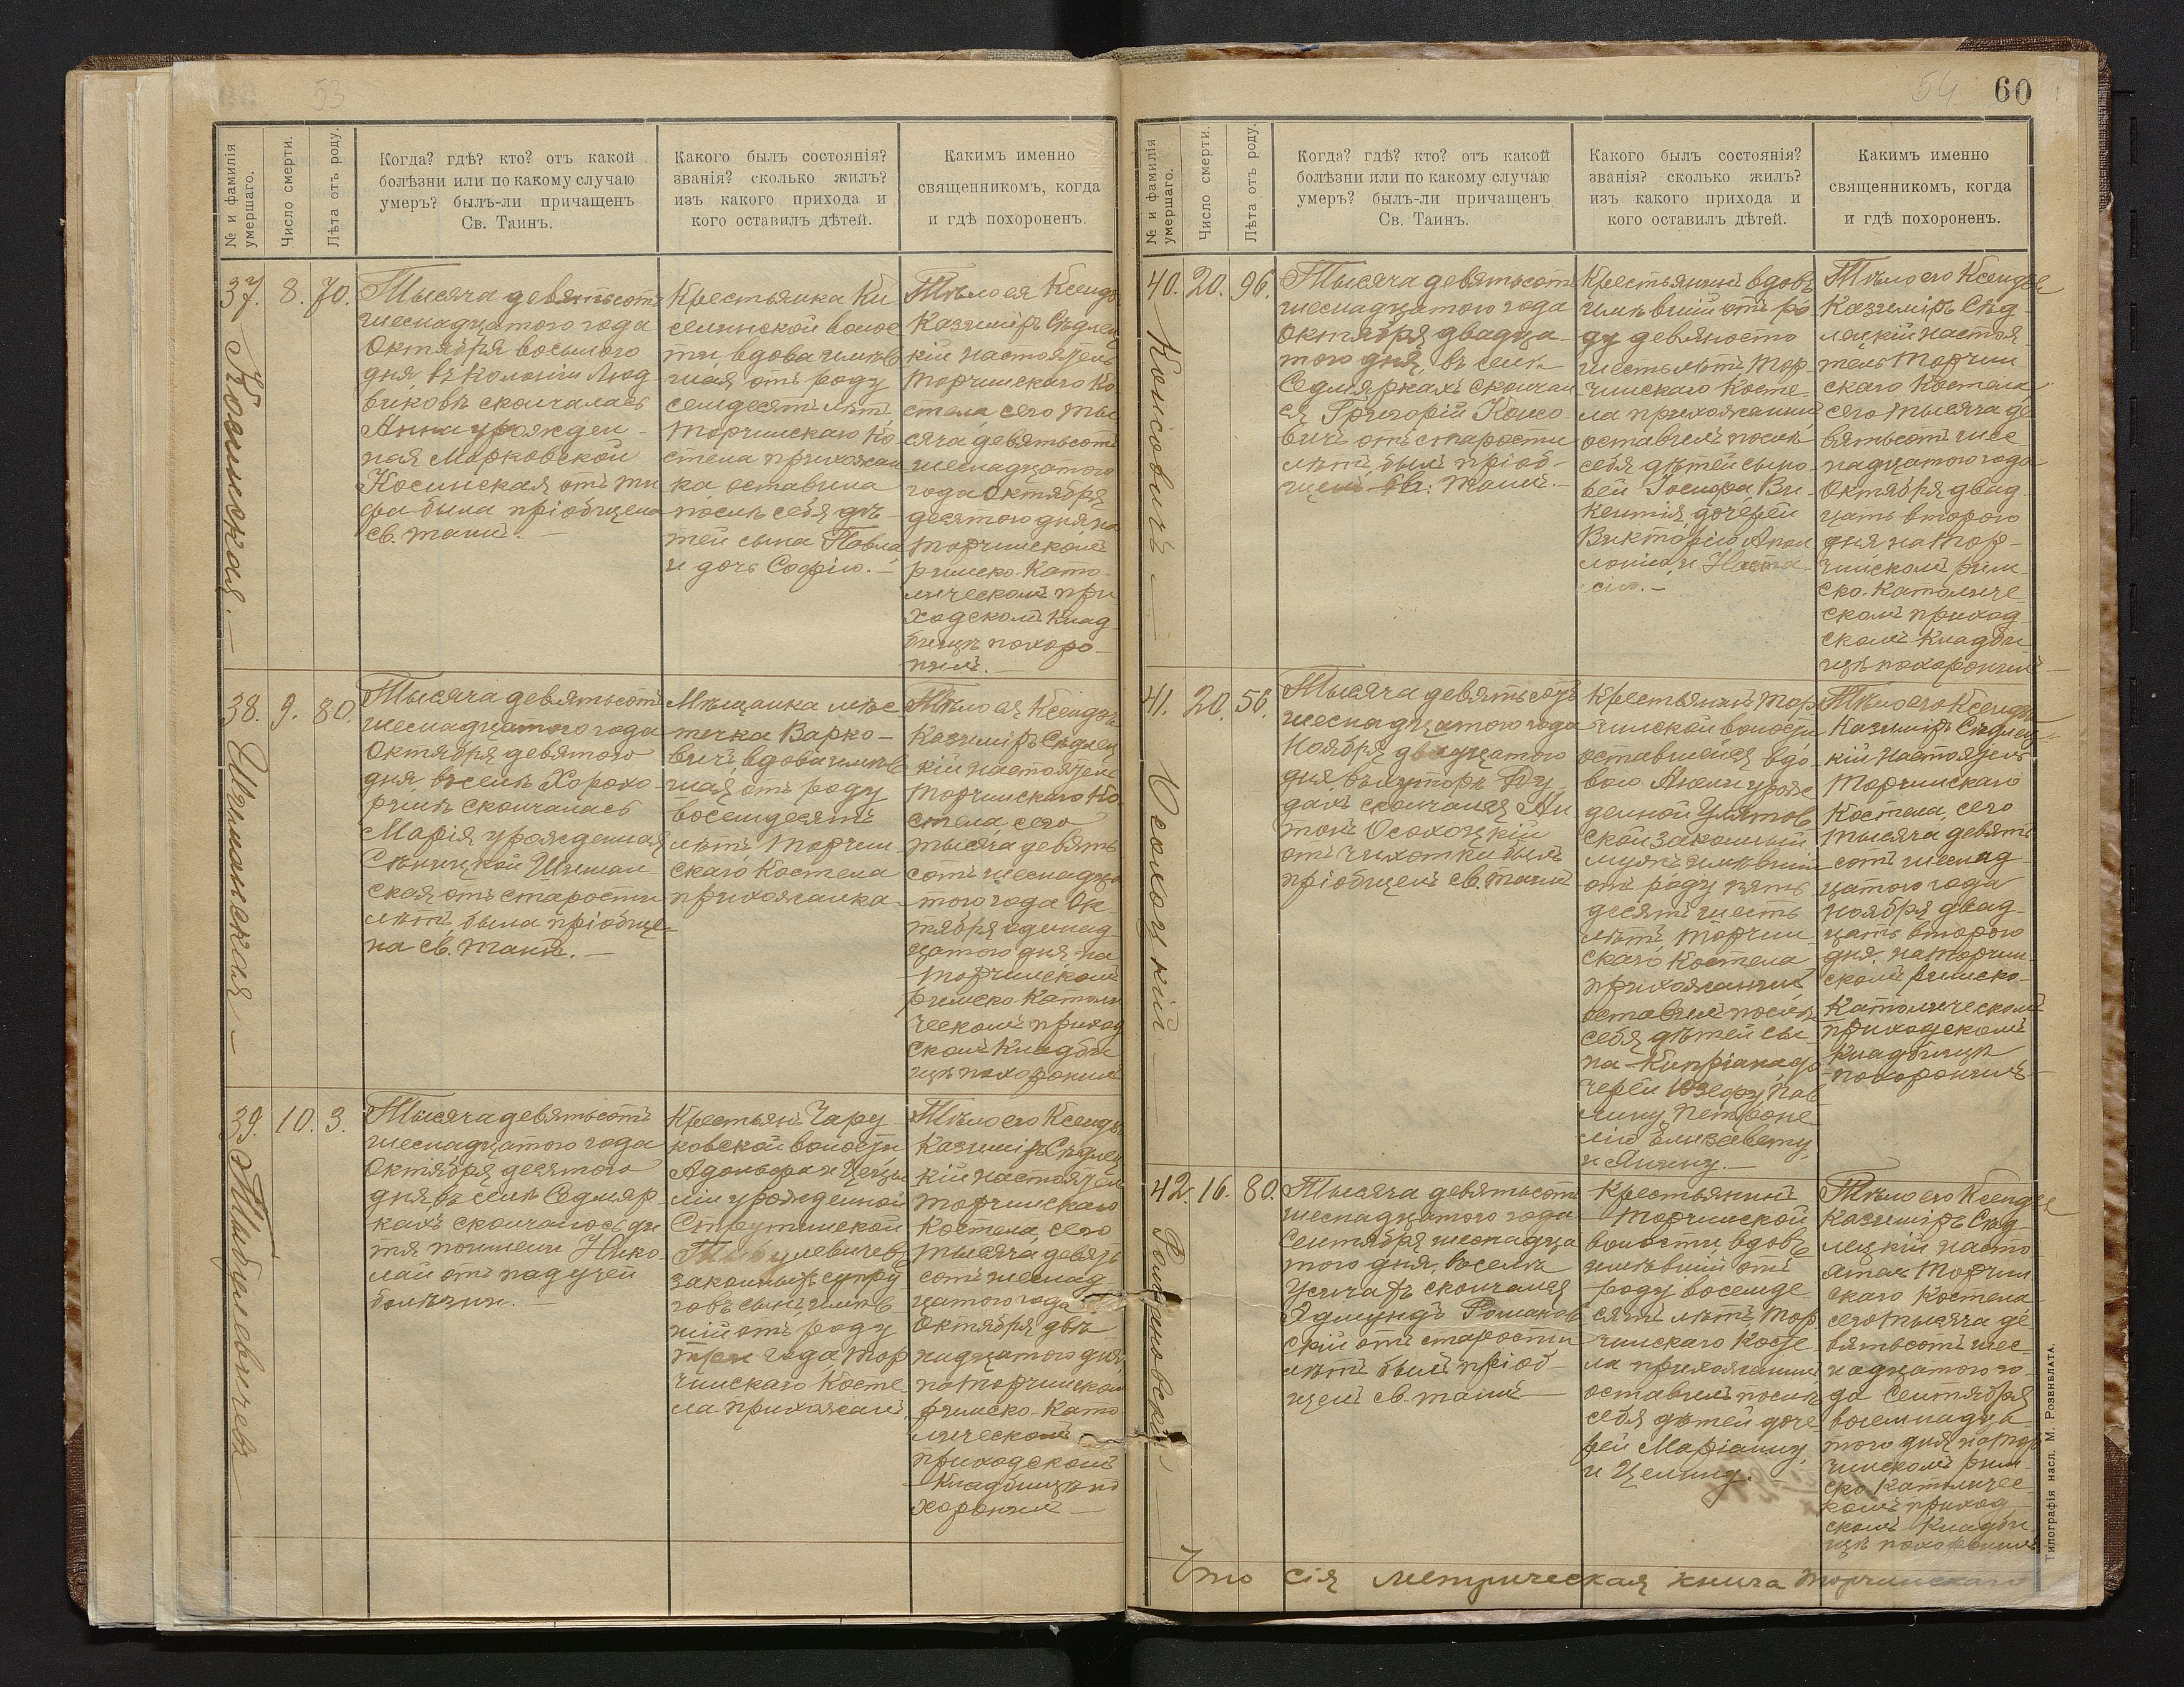 53
№ и фамилія умершаго.
Число смерти.
Лѣта отъ роду.
Когда? гдѣ? кто? отъ какой
болѣзни или по какому случаю
умеръ? былъ-ли причащенъ
Св. Таинъ.
Какого былъ состоянія?
званія? сколько жилъ?
изъ какого прихода и
кого оставилъ дѣтей.
Какимъ именно
священникомъ, когда
и гдѣ похороненъ.
37.
Косинская. —
8.
70.
Тысяча девятьсотъ
шеснадцатого года
Октября восьмого
дня въ Колоніи Люд
виковѣ скончалась
Анна урожден-
ная Марковской
Косинская отъ ти
фа была пріобщена
св. таинъ. —
Крестьянка Ки
селинской волос
ти вдова имѣв
шая отъ роду
семдесятъ лѣтъ
Торчинскаго Ко
стела прихожан
ка оставила
послѣ себя дѣ-
тей сына Павла
и дочь Софію. —
Тѣло ея Ксендзъ
Казимиръ Сѣдлец
кій настоятель
Торчинскаго Ко
стела сего ты
сяча девятьсотъ
шеснадцатого
года Октября
десятого дня на
Торчинскомъ
римско-Като-
лическомъ при
ходскомъ клад
бищѣ похоро-
нилъ. —
38.
Шиманская —
9.
80.
Тысяча девятьсотъ
шеснадцатого года
Октября девятого
дня, въ селѣ Хорохо
ринѣ скончалась
Марія урожденная
Сѣницкой Шиман-
ская отъ старости
лѣтъ, была пріобще
на св. таинъ. —
Мѣщанка мѣс
течка Варко-
вичъ, вдова имѣв
шая отъ роду
восемдесятъ
лѣтъ Торчин-
скаго Костела
прихожанка
Тѣло ея Ксендзъ
Казимиръ Сѣдлец
кій настоятель
Торчинскаго Ко
стела сего
тысяча девять
сотъ шеснадца
того года Ок-
тября одинад-
цатого дня на
Торчинскомъ
римско-Католи
ческомъ приход
скомъ Кладби
щѣ похоронилъ
39.
10.
3.
Тысяча девятьсотъ
шеснадцатого года
Октября десятого
дня, въ селѣ Седмяр
кахъ скончалось ди
тя по имени Нико-
лай отъ падучей
болѣзни. —
Крестьянъ Чару
ковской волости
Адольфа и Цеци
ліи урожденной
Струтинской
законныхъ супру
говъ сынъ, имѣв-
шій отъ роду
три года Тор
чинскаго Косте
ла прихожанъ.
Тѣло его Ксендзъ
Казимиръ Сѣдлец
кій настоятель
Торчинскаго
Костела, сего
тысяча девять
сотъ шеснад-
цатого года
Октября двѣ
надцатого дня
на Торчинскомъ
римско-Като
лическомъ
приходскомъ
Кладбищѣ по
хоронилъ —
54
60
№ и фамилія умершаго.
Число смерти.
Лѣта отъ роду.
Когда? гдѣ? кто? отъ какой
болѣзни или по какому случаю
умеръ? былъ-ли причащенъ
Св. Таинъ.
Какого былъ состоянія?
званія? сколько жилъ?
изъ какого прихода и
кого оставилъ дѣтей.
Какимъ именно
священникомъ, когда
и гдѣ похороненъ.
40.
Консовичъ —
20.
96.
Тысяча девятьсотъ
шеснадцатого года
Октября двадца-
того дня, въ селѣ
Седмяркахъ скончал
ся Григорій Консо
вичъ отъ старости
лѣтъ былъ пріоб-
щенъ св. таинъ. —
Крестьянинъ вдовъ
имѣвшій отъ ро
ду девяносто
шесть лѣтъ Тор
чинскаго Косте-
ла прихожанинъ
оставилъ послѣ
себя дѣтей сыно
вей Іосифа Ви-
кентія, дочерей
Викторію Апол
лонію и Наста
сію. —
Тѣло его Ксендзъ
Казимиръ Сѣд-
лецкій настоя-
тель Торчин-
скаго Костела
сего тысяча де
вятьсотъ шес-
надцатого года
Октября двад-
цать второго
дня на Тор-
чинскомъ рим-
ско-Католиче-
скомъ приход-
скомъ кладби
щѣ похоронилъ —
41.
Осохоцкій —
20.
56.
Тысяча девятьсотъ
шеснадцатого года
Ноября двадцатого
дня, въ хуторѣ Бу
дахъ скончался Ан
тонъ Осохоцкій
отъ чихотки былъ
пріобщенъ св. таинъ
Крестьянинъ Тор
чинской волости
оставшейся вдо-
вою Анели урож
денной
ской законный
мужъ имѣвшій
отъ роду пять
десятъ шесть
лѣтъ, Торчин-
скаго Костела
прихожанинъ
оставилъ послѣ
себя дѣтей сы-
на Кипріана до
черей Юзефу, Пав
лину, Петроне
лію Елизавету
и Янину. —
Тѣло его Ксендзъ
Казимиръ Сѣдлец-
кій настоятель
Торчинскаго
Костела, сего
тысяча девять
сотъ шеснад
цатого года
ноября двад-
цать второго
дня, на Торчин-
скомъ римско-
Католическомъ
приходскомъ
Кладбищѣ
похоронилъ —
42.
Романовскій —
16.
80.
Тысяча девятьсотъ
шеснадцатого года
Сентября шеснадца
того дня, въ селѣ
скончался
Эдмундъ Романов
скій отъ старости
лѣтъ былъ пріоб-
щенъ св. таинъ —
Крестьянинъ
Торчинской
волости, вдовъ
имѣвшій отъ
роду восемде-
сятъ лѣтъ Тор
чинскаго Косте
ла прихожанинъ
оставилъ послѣ
себя дѣтей доче
рей Маріанну
и Целину.
Тѣло его Ксендзъ
Казимиръ Сѣд-
лецкій насто-
ятель Торчин
скаго Костела
сего тысяча де
вятьсотъ шес-
надцатого го-
да Сентября
восемнадца
того дня на Тор
чинскомъ рим-
ско Католичес-
комъ приход-
скомъ Кладби
щѣ похоронилъ
Что сія метрическая книга Торчинскаго
Типографія насл. М. Розенблата.